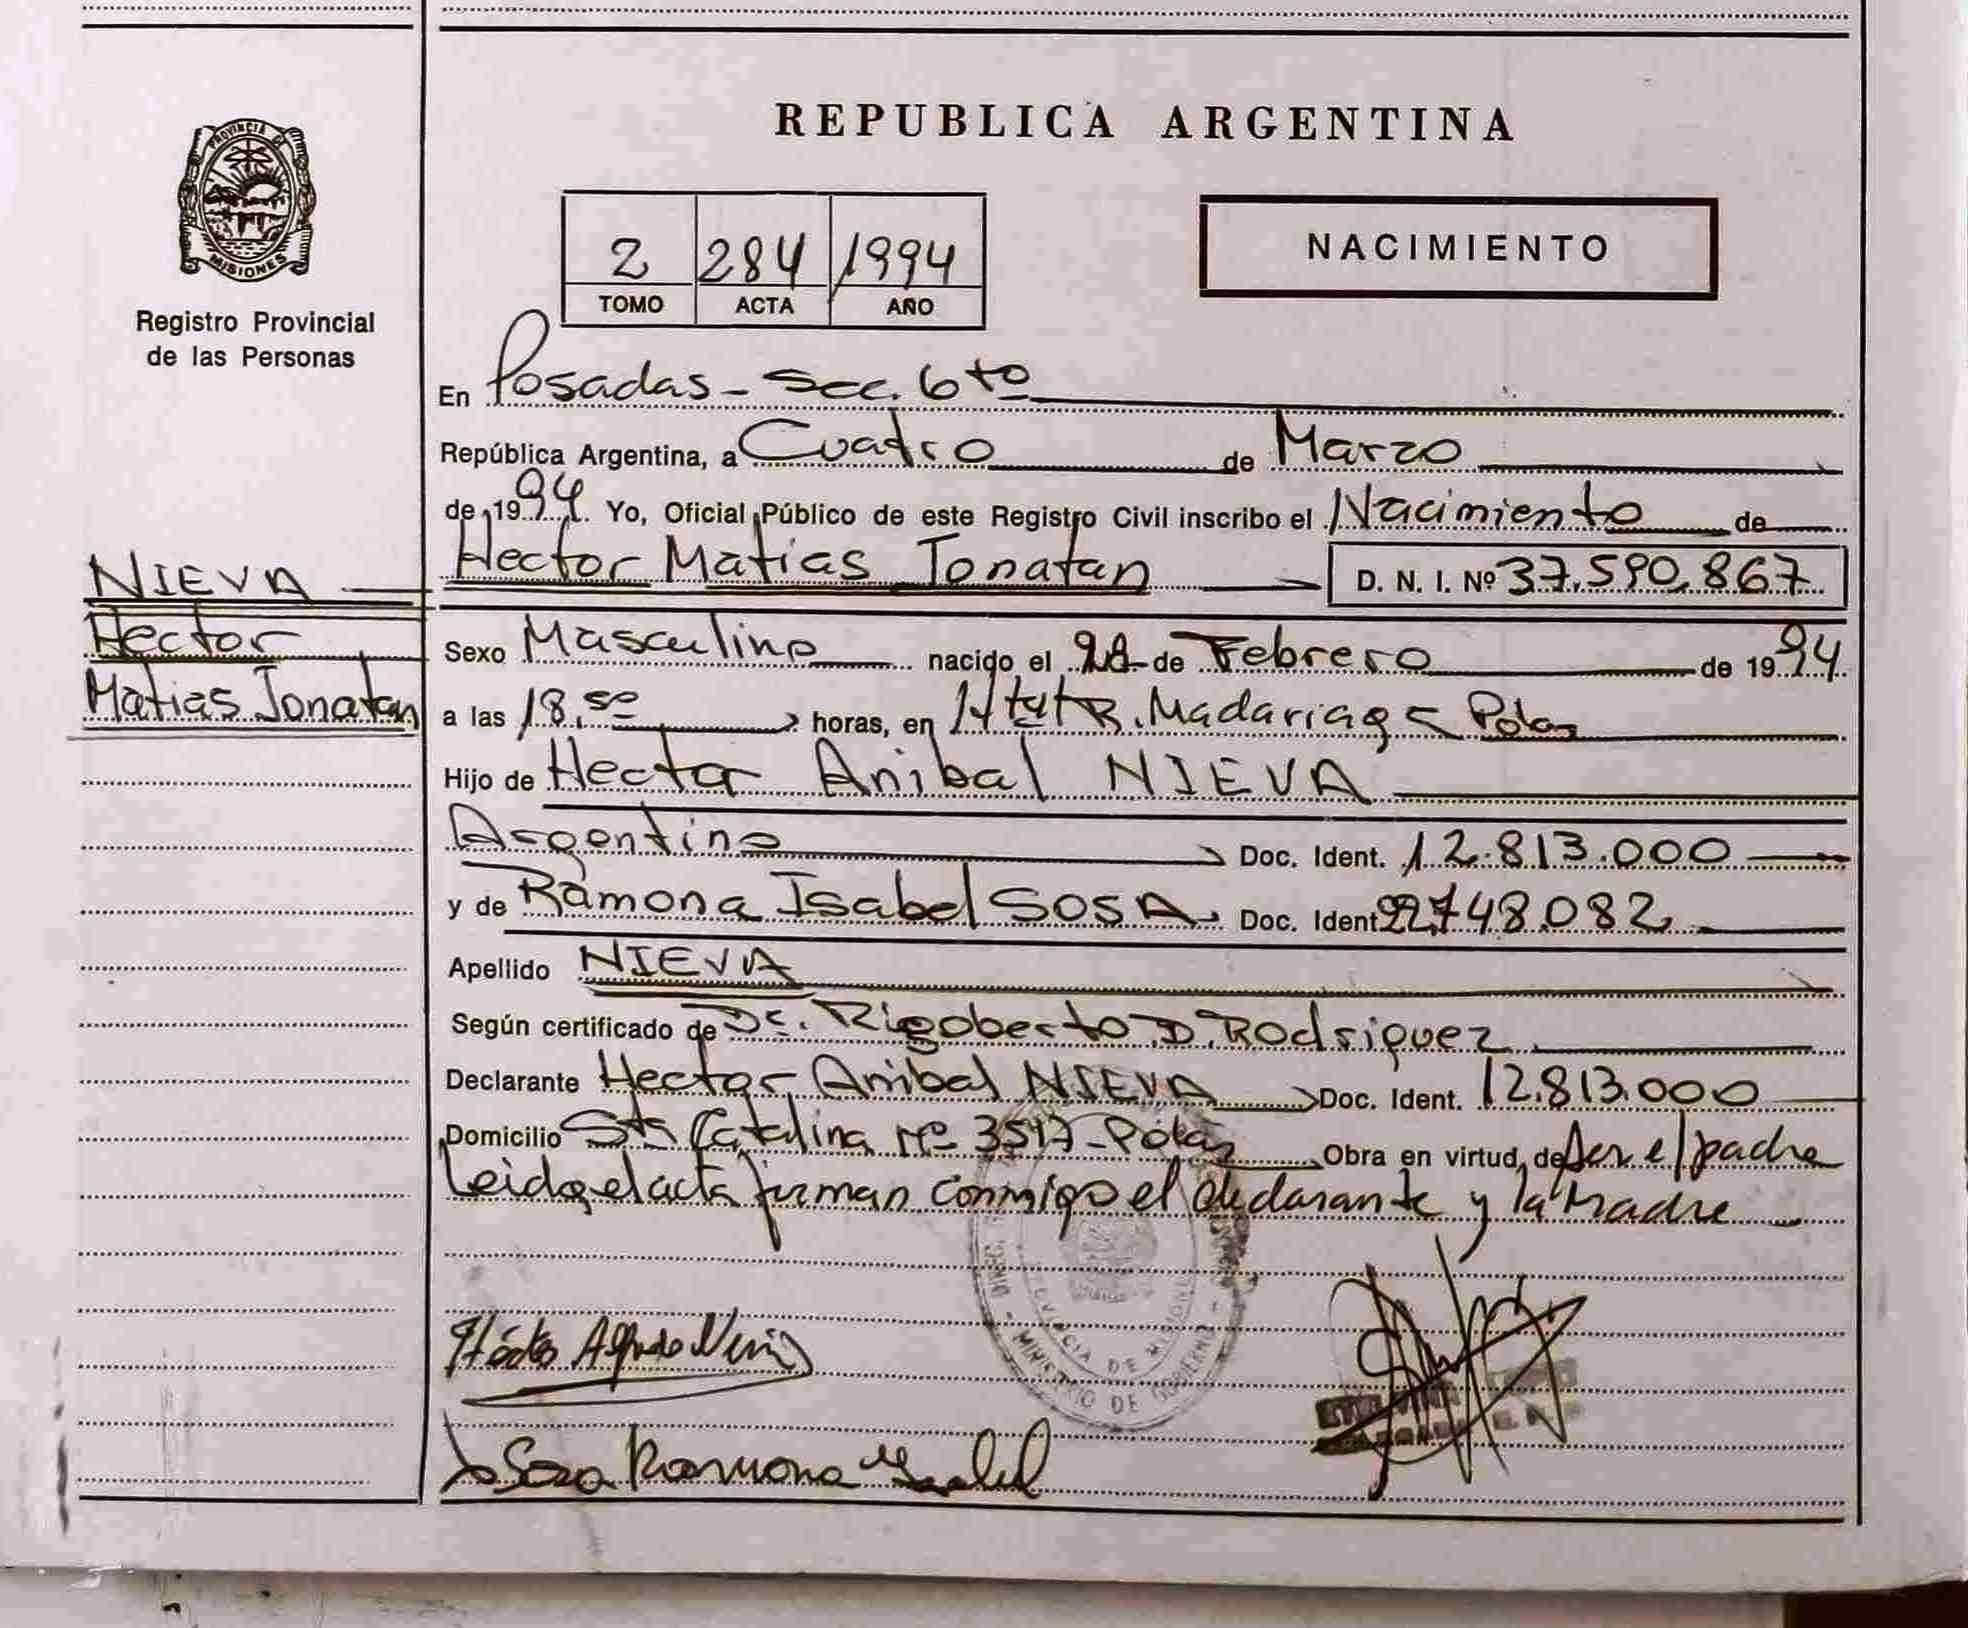 PROVINCIA DE
MISIONES
Registro Provincial
de las Personas
NIEVA
Hector
Matias Jonatan
REPUBLICA ARGENTINA
2 284 1994
TOMO ACTA AÑO
NACIMIENTO
En Posadas - Sec. 6to
República Argentina, a Cuatro de Marzo
de 1994. Yo, Oficial Público de este Registro Civil inscribo el Nacimiento de
Hector Matias Jonatan D. N. I. Nº 37.590.867
Sexo Masculino nacido el 28 de Febrero de 1994
a las 18,50 horas, en R. Madariaga - Pdas
Hijo de Hector Anibal NIEVA
Argentino Doc. Ident. 12.813.000
y de Ramona Isabel SOSA Doc. Ident 22.748.082
Apellido NIEVA
Según certificado de Dr. Rigoberto D. Rodriguez
Declarante Hector Anibal NIEVA Doc. Ident. 12.813.000
Domicilio Sta Catalina Nº 3517 - Pdas Obra en virtud, de ser el padre
Leida el acta firman conmigo el declarante y la Madre
PROVINCIA DE MISIONES
MINISTERIO DE GOBIERNO
Sosa Ramona Ysabel